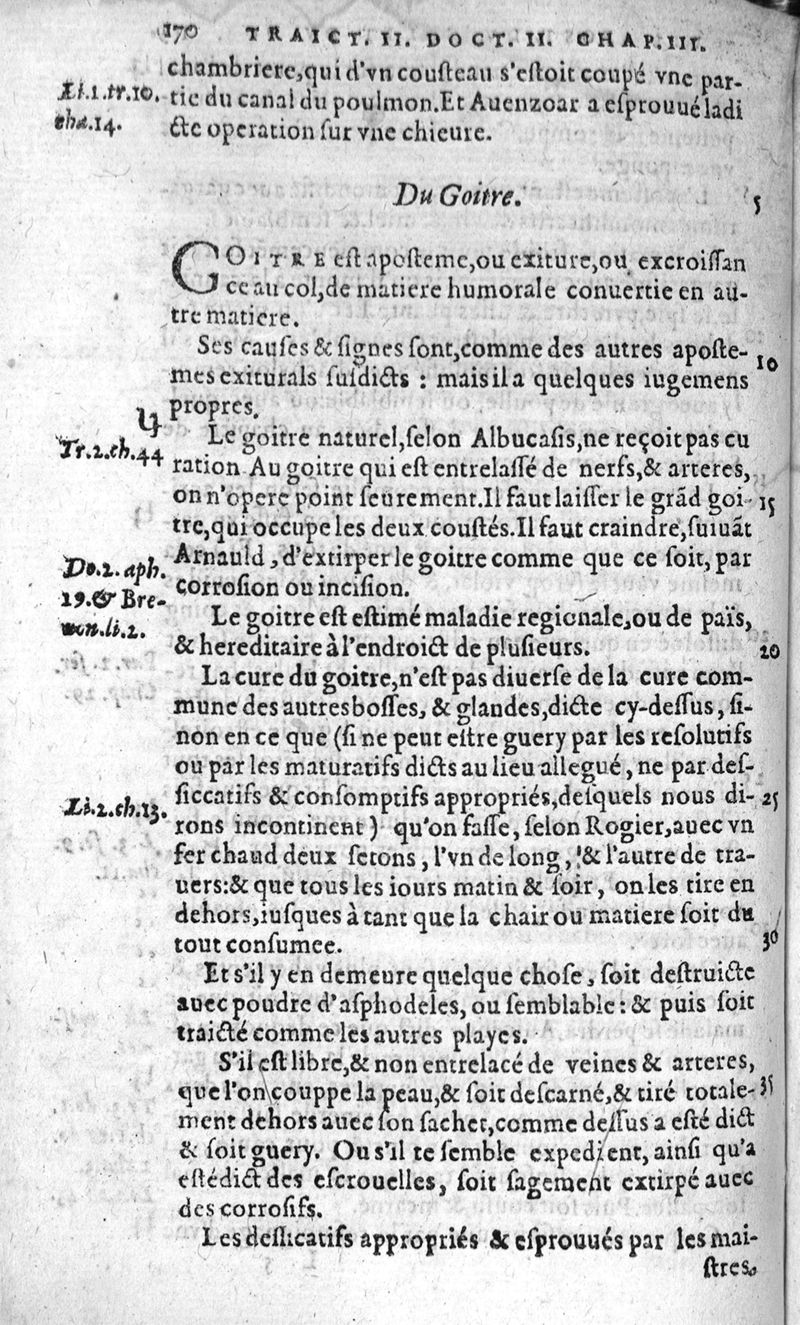 170 TRAICT. II. DOCT. II. CHAP. III.
chambriere,qui d'vn couſteau s'eſtoit coupé vne par-
Li.1.tr.10. tie du canal du poulmon.Et Auenzoar a eſprouué ladi
cha.14. cte operation ſur vne chieure.
Du Goitre. 5
GOITRE eſt apoſteme,ou exiture,ou excroiſſan
ce au col,de matiere humorale conuertie en au-
tre matiere.
Ses cauſes & ſignes ſont,comme des autres apoſte- 10
mes exiturals ſuſdicts : mais il a quelques iugemens
propres.
Le goitre naturel,ſelon Albucaſis,ne reçoit pas cu
Tr.2.ch.44 ration Au goitre qui eſt entrelaſſé de nerfs,& arteres,
on n'opere point ſeurement.Il faut laiſſer le grãd goi- 15
tre,qui occupe les deux couſtés.Il faut craindre,ſuiuãt
Do.2.aph. Arnauld, d'extirper le goitre comme que ce ſoit, par
19.& Bre- corroſion ou inciſion.
uon.li.2. Le goitre eſt eſtimé maladie regionale,ou de païs,
& hereditaire à l'endroict de pluſieurs. 20
La cure du goitre,n'eſt pas diuerſe de la cure com-
mune des autres boſſes, & glandes,dicte cy-deſſus, ſi-
non en ce que (ſi ne peut eſtre guery par les reſolutifs
ou par les maturatifs dicts au lieu allegué, ne par deſ-
Li.2.ch.13. ſiccatifs & conſomptifs appropriés,deſquels nous di- 25
rons incontinent) qu'on faſſe, ſelon Rogier,auec vn
fer chaud deux ſetons, l'vn de long, & l'autre de tra-
uers:& que tous les iours matin & ſoir, on les tire en
dehors,iuſques à tant que la chair ou matiere ſoit du
tout conſumee. 30
Et s'il y en demeure quelque choſe, ſoit deſtruicte
auec poudre d'aſphodeles, ou ſemblable: & puis ſoit
traicté comme les autres playes.
S'il eſt libre,& non entrelacé de veines & arteres,
que l'on couppe la peau,& ſoit deſcarné,& tiré totale- 35
ment dehors auec ſon ſachet,comme deſſus a eſté dict
& ſoit guery. Ou s'il te ſemble expedient, ainſi qu'a
eſté dict des eſcrouelles, ſoit ſagement extirpé auec
des corroſifs.
Les deſſicatifs appropriés & eſprouués par les mai-
ſtres.